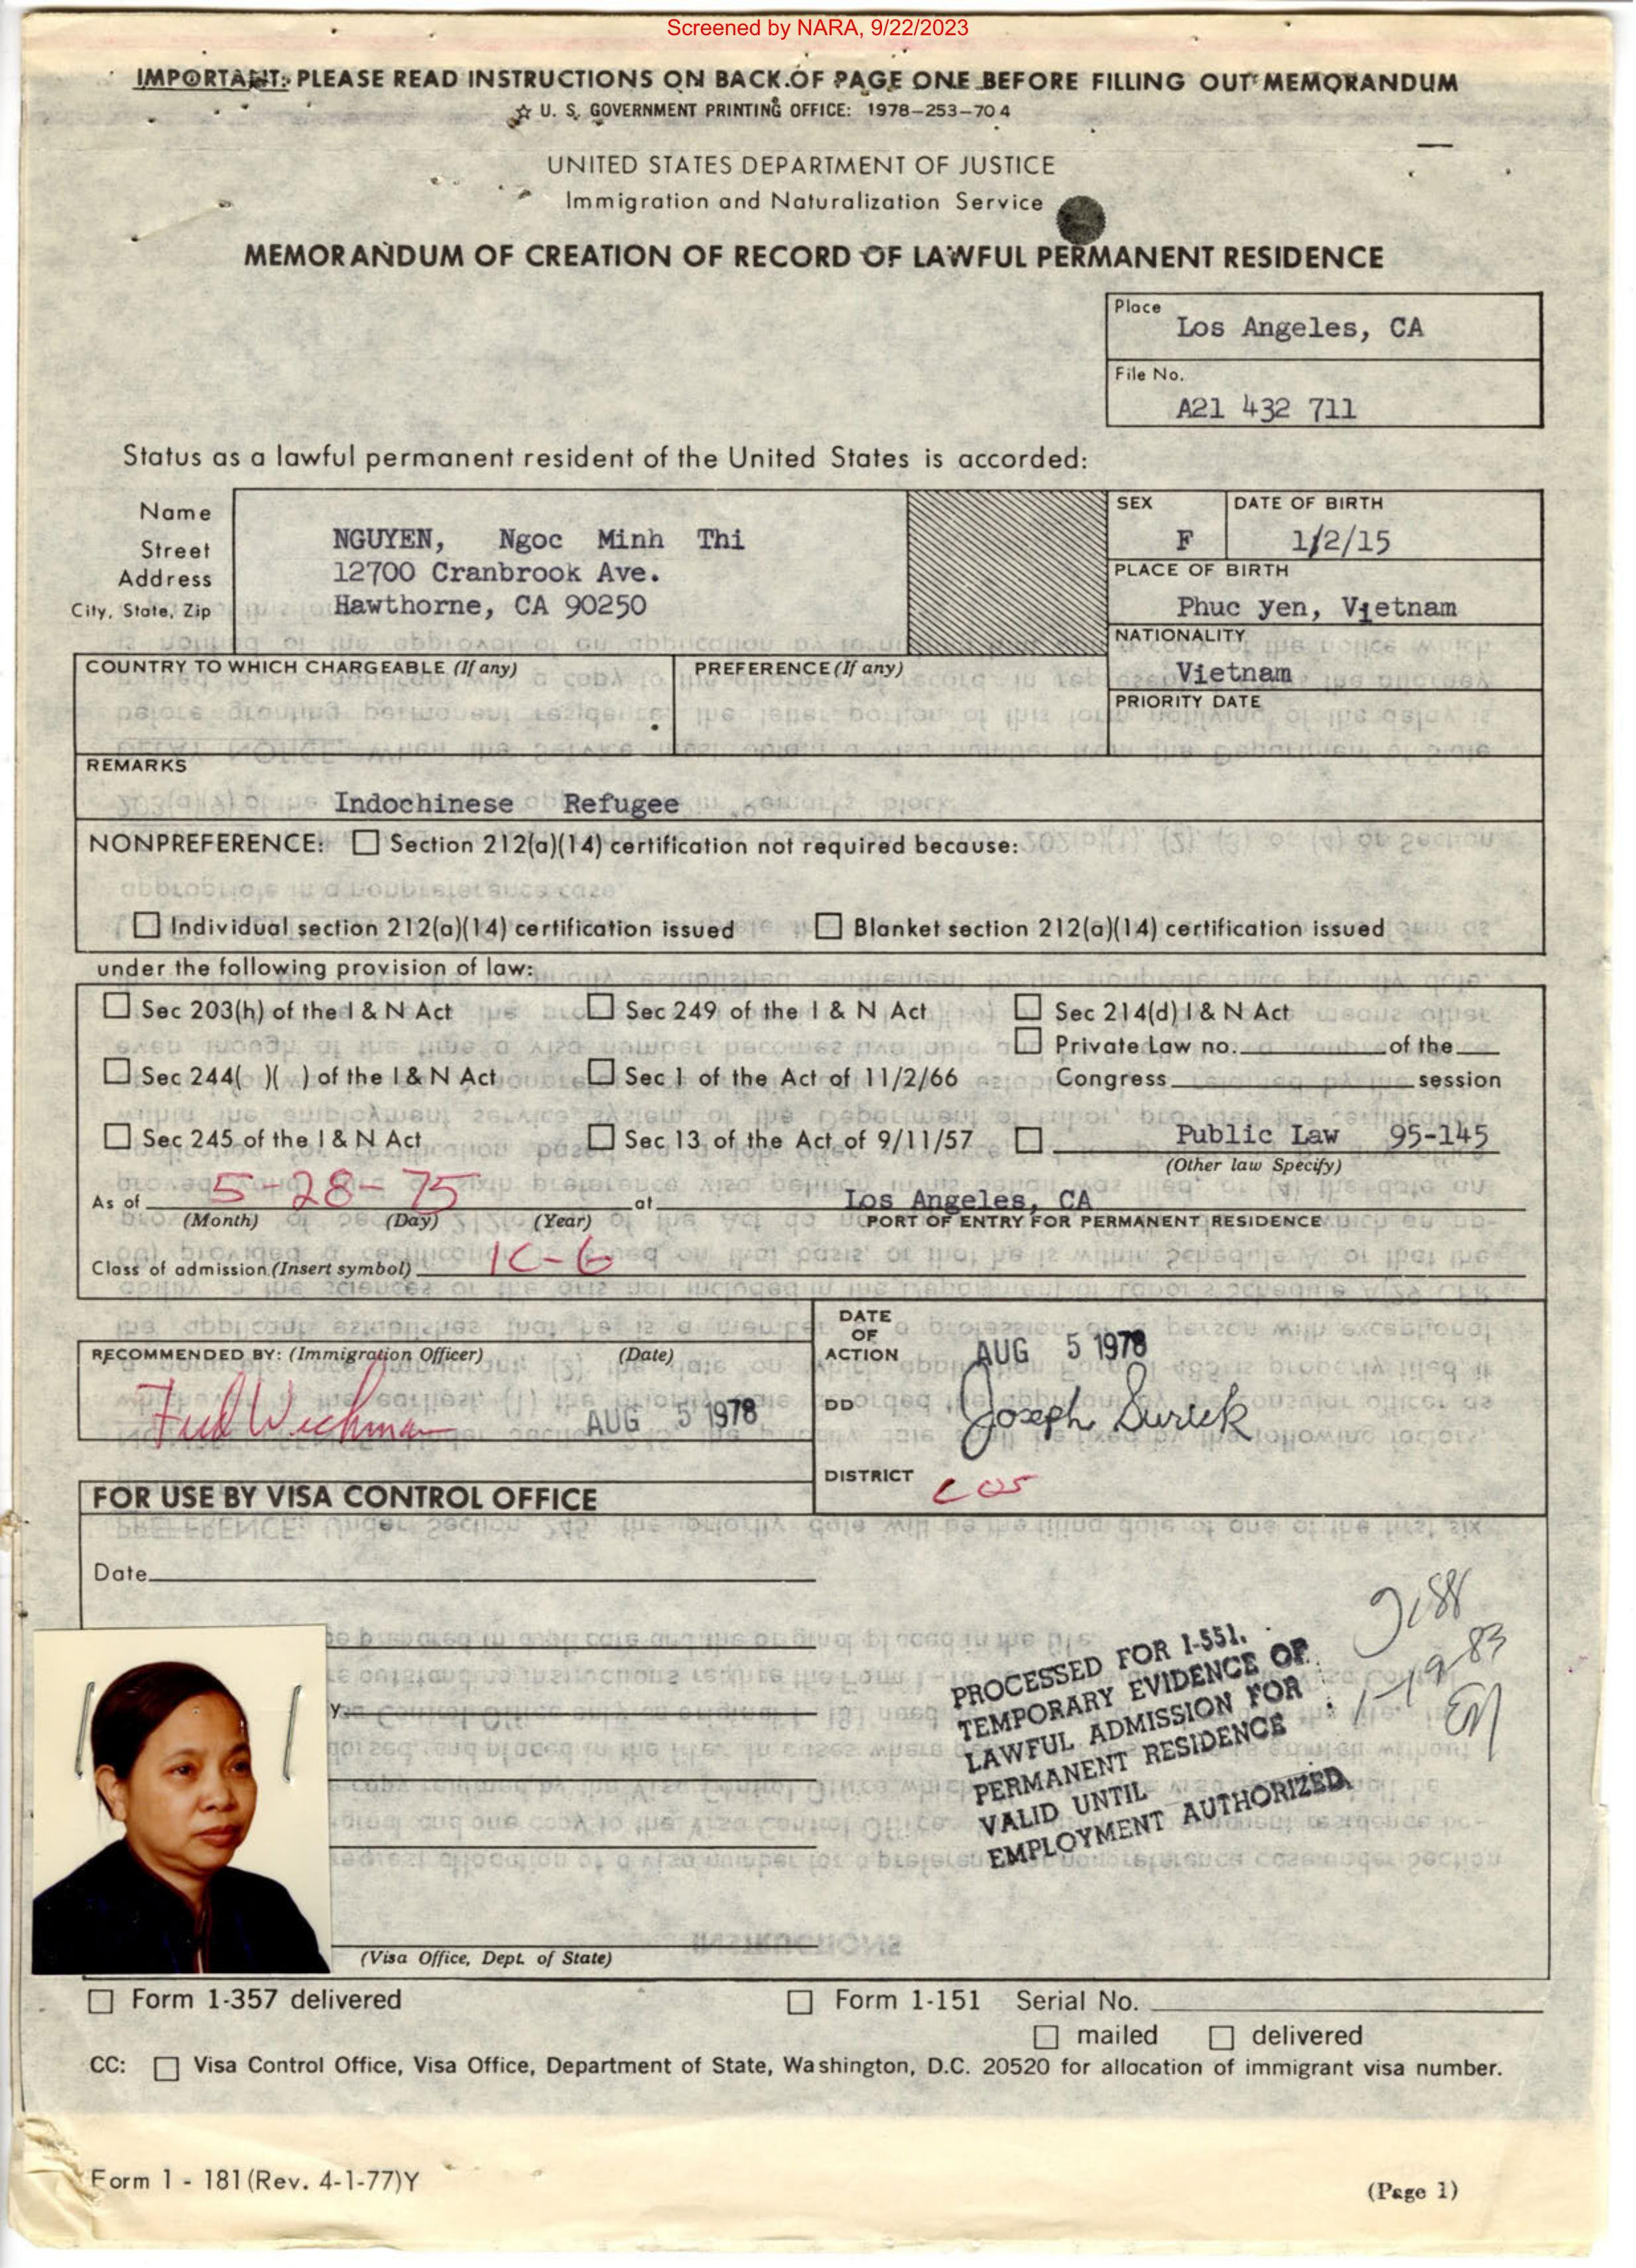 Screened by NARA, 9/22/2023
IMPORTANT: PLEASE READ INSTRUCTIONS ON BACK OF PAGE ONE BEFORE FILLING OUT MEMORANDUM
☆ U. S. GOVERNMENT PRINTING OFFICE: 1978-253-704
UNITED STATES DEPARTMENT OF JUSTICE
Immigration and Naturalization Service
MEMORANDUM OF CREATION OF RECORD OF LAWFUL PERMANENT RESIDENCE
Place
Los Angeles, CA
File No.
A21 432 711
Status as a lawful permanent resident of the United States is accorded:
Name
Street
Address
City, State, Zip
NGUYEN, Ngoc Minh Thi
12700 Cranbrook Ave.
Hawthorne, CA 90250
SEX
F
DATE OF BIRTH
1/2/15
PLACE OF BIRTH
Phuc yen, Vietnam
NATIONALITY
Vietnam
PRIORITY DATE
COUNTRY TO WHICH CHARGEABLE (If any)
PREFERENCE (If any)
REMARKS
Indochinese Refugee
NONPREFERENCE: ☐ Section 212(a)(14) certification not required because:
☐ Individual section 212(a)(14) certification issued ☐ Blanket section 212(a)(14) certification issued
under the following provision of law:
☐ Sec 203(h) of the I & N Act ☐ Sec 249 of the I & N Act ☐ Sec 214(d) I & N Act
☐ Private Law no. of the
☐ Sec 244( )( ) of the I & N Act ☐ Sec 1 of the Act of 11/2/66 Congress session
☐ Sec 245 of the I & N Act ☐ Sec 13 of the Act of 9/11/57 ☐ Public Law 95-145
(Other law Specify)
As of 5-28-75 at Los Angeles, CA
(Month) (Day) (Year) PORT OF ENTRY FOR PERMANENT RESIDENCE
Class of admission (Insert symbol) IC-6
RECOMMENDED BY: (Immigration Officer) (Date)
Fred Wichman AUG 5 1978
DATE
OF
ACTION
AUG 5 1978
DD
Joseph Surick
DISTRICT
LOS
FOR USE BY VISA CONTROL OFFICE
Date
y
PROCESSED FOR I-551.
TEMPORARY EVIDENCE OF
LAWFUL ADMISSION FOR
PERMANENT RESIDENCE
VALID UNTIL
EMPLOYMENT AUTHORIZED
1-19-83
(Visa Office, Dept. of State)
☐ Form 1-357 delivered ☐ Form 1-151 Serial No.
☐ mailed ☐ delivered
CC: ☐ Visa Control Office, Visa Office, Department of State, Washington, D.C. 20520 for allocation of immigrant visa number.
Form 1 - 181 (Rev. 4-1-77)Y
(Page 1)